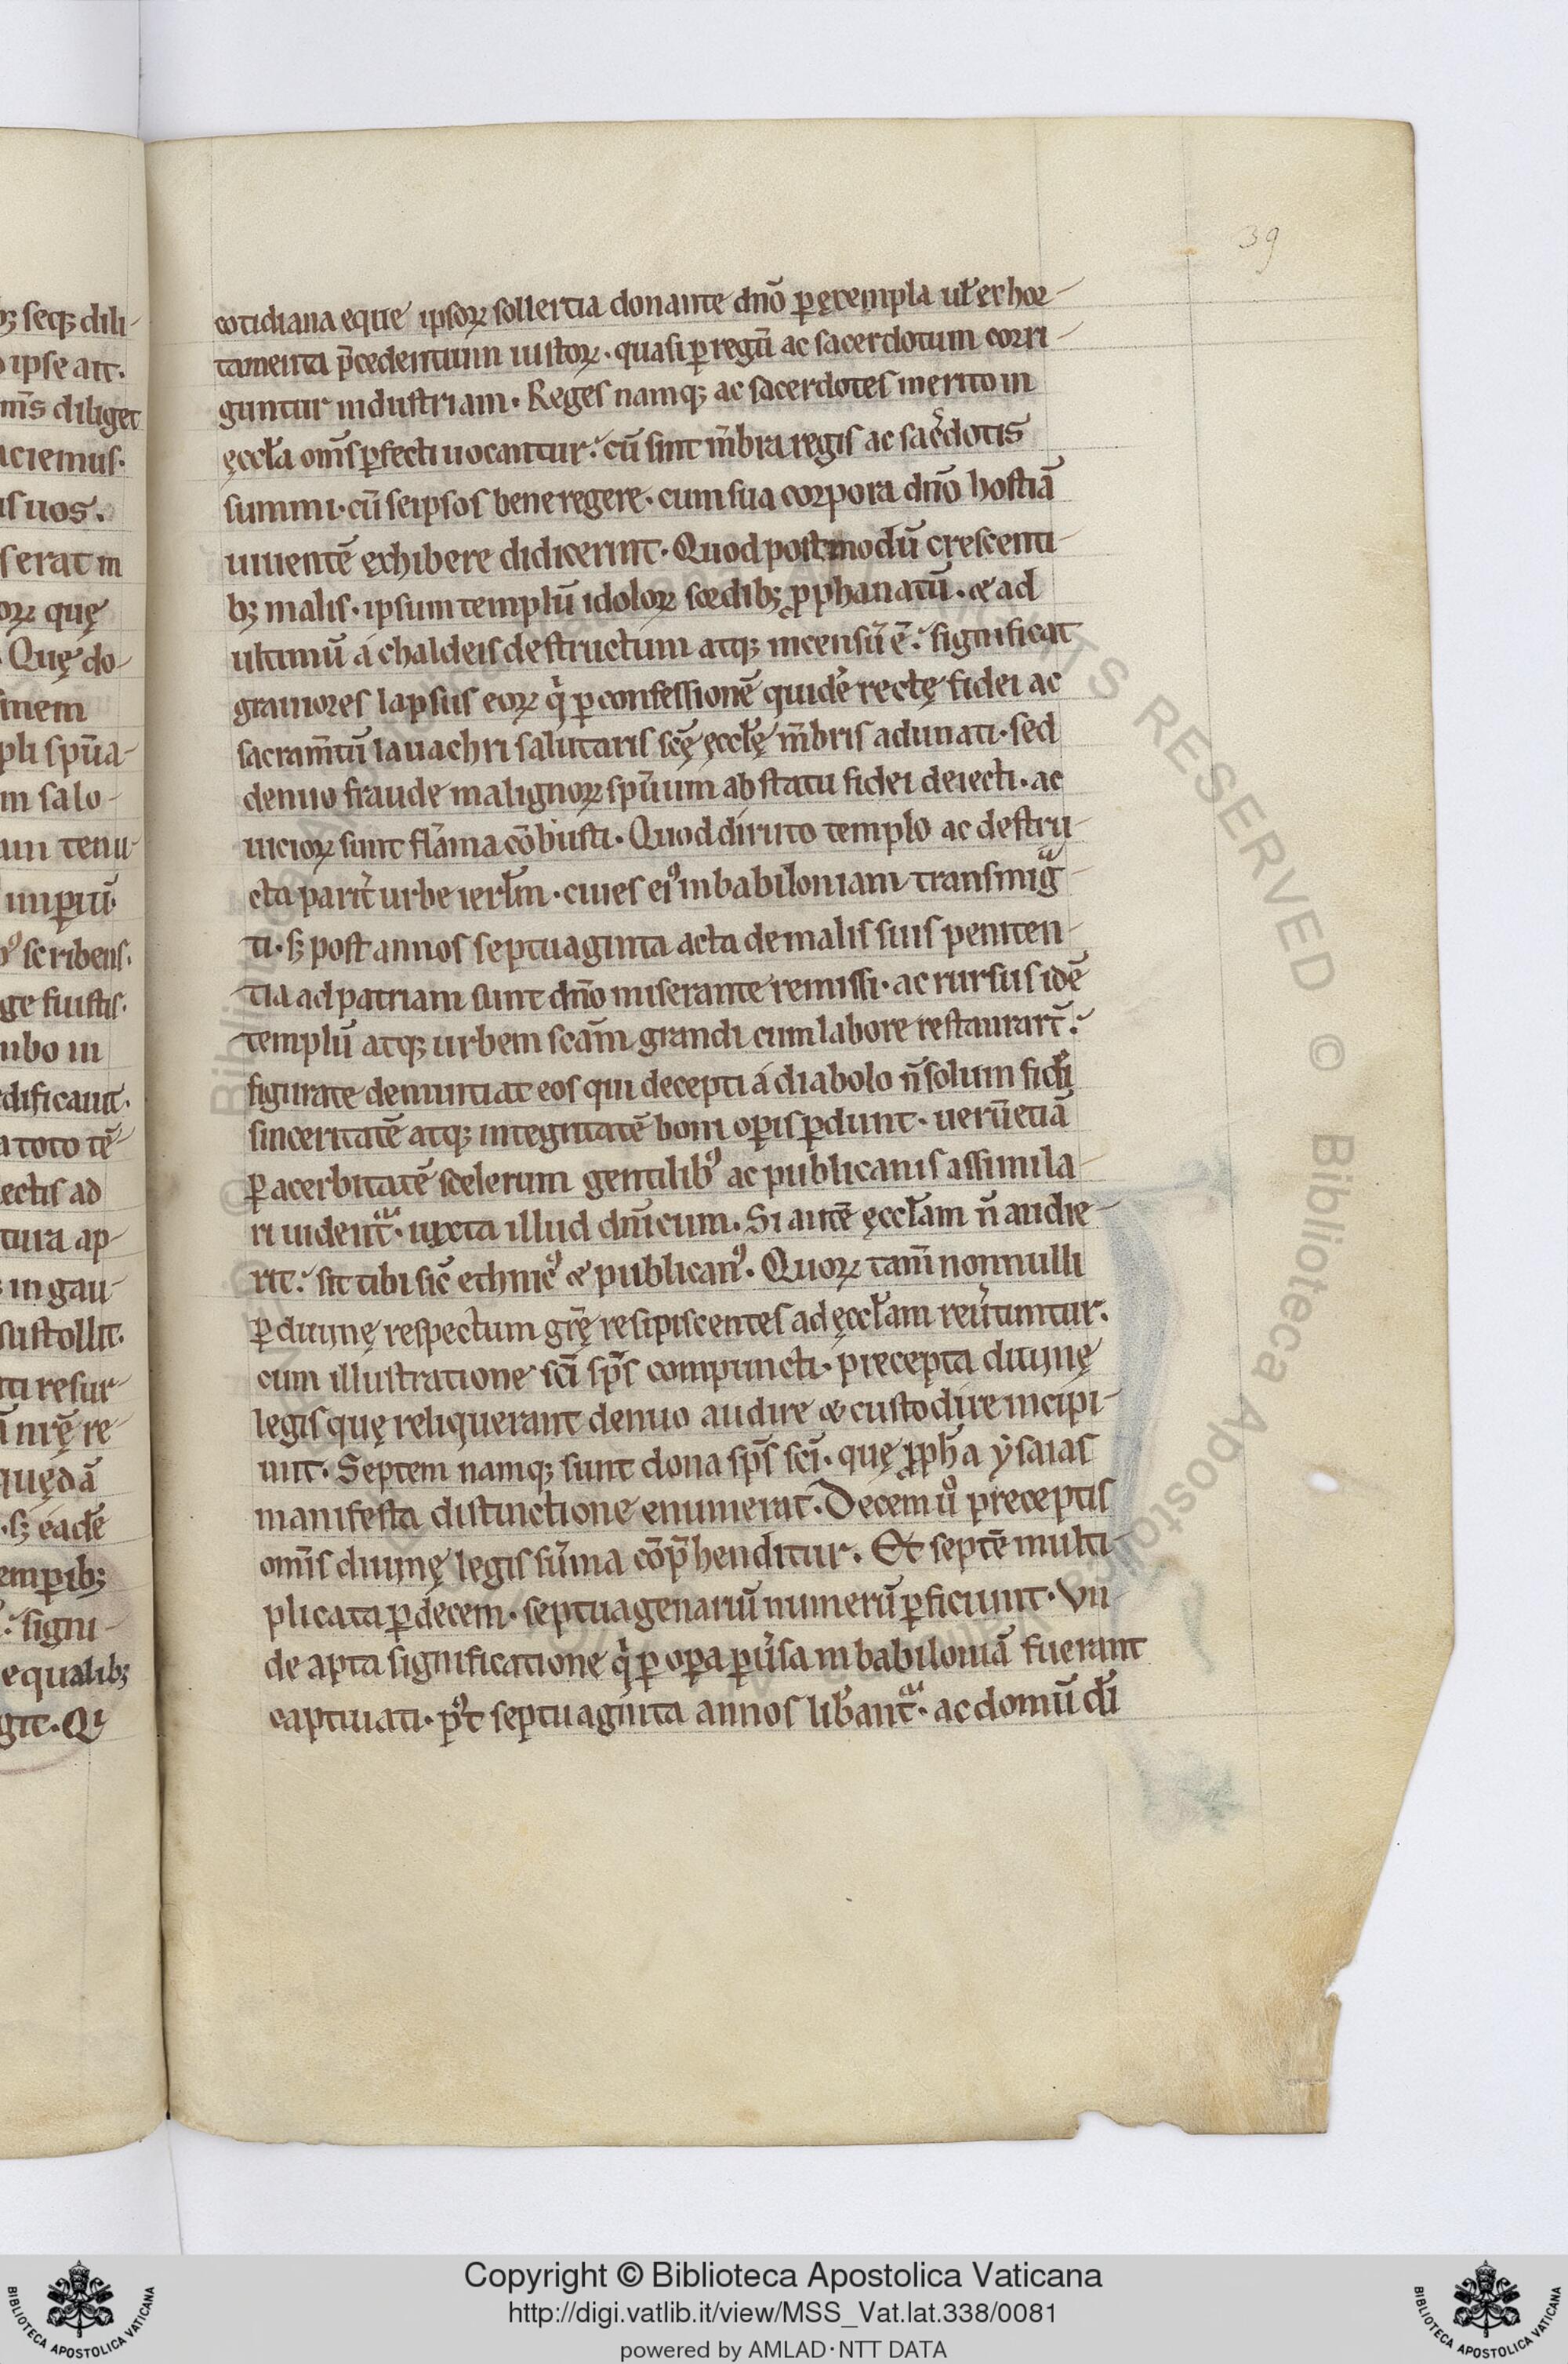 39
cotidiana eque ipsoꝝ sollertia donante dnō ꝑ ęxempla ut̄ exhor-
tamenta p̄cedentium iustoꝝ· quasi ꝑ regū ac sacerdotum corri-
guntur industriam· Reges namq; ac sacerdotes merito in
ęccl̄a om̄s ꝑfecti uocantur: cū sint m̄bra regis ac sac̄dotis
summi· cū seipsos bene regere· cum sua corpora dn̄o hostiā
uiuentē ęxhibere didicerint· Quod postmodū crescenti-
b; malis· ipsum templū idoloꝝ sordib; ꝓphanatū· & ad
ultimū á chaldeis destructum atq; incensū ē: significat
grauiores lapsus eoꝝ qͥ ꝑ confessionē quidē rectę fidei ac
sacram̄tū lauachri salutaris scę̄ ęccl̄ę m̄bris adunati· sed
denuo fraude malignoꝝ spūum ab statu fidei deiecti· ac
uicioꝝ sunt flāma cōbusti· Quod diruto templo ac destru-
cta parit̄ urbe ierl̄m· ciues ei⁹ in babiloniam transmigᵃ-
ti· s; post annos septuaginta acta de malis suis peniten-
tia ad patriam sunt dn̄o miserante remissi· ac rursus idē
templū atq; urbem scām grandi cum labore restaurart̄:
figurate denuntiat eos qui decepti á diabolo n̄ solum fid̄i
sinceritatē atq; integritatē boni oꝑis ꝑdunt· uerū etiā
ꝑ acerbitatē scelerum gentilib⁹ ac publicanis assimila-
ri uident̄· iuxta illud dn̄icum· Si autē ęccl̄am n̄ audie-
rit: sit tibi sic̄ ethnic⁹ & publican⁹· Quoꝝ tam̄ nonnulli
ꝑ diuinę respectum gr̄ę resipiscentes ad ęccl̄am reu̇tuntur·
cum illustratione sc̄i sp̄s compuncti· precepta diuinę
legis quę reliquerant denuo audire & custodire incipi-
unt· Septem namq; sunt dona sp̄s sc̄i· quę ꝓph̄a ẏsaias
manifesta distinctione enumerat· Decem ū⁰ preceptis
om̄s diuinę legis sūma cōp̄henditur· Et septē multi-
plicata ꝑ decem· septuagenariū numerū ꝑficiunt· Vn-
de apta significatione qͥ ꝑ oꝑa ꝑu̇sa in babiloniā fuerant
captiuati· p⁹t septuaginta annos lib̄ant̄· ac domū d̄i
Copyright © Biblioteca Apostolica Vaticana
http://digi.vatlib.it/view/MSS_Vat.lat.338/0081
powered by AMLAD·NTT DATA
BIBLIOTECA APOSTOLICA VATICANA
BIBLIOTECA APOSTOLICA VATICANA